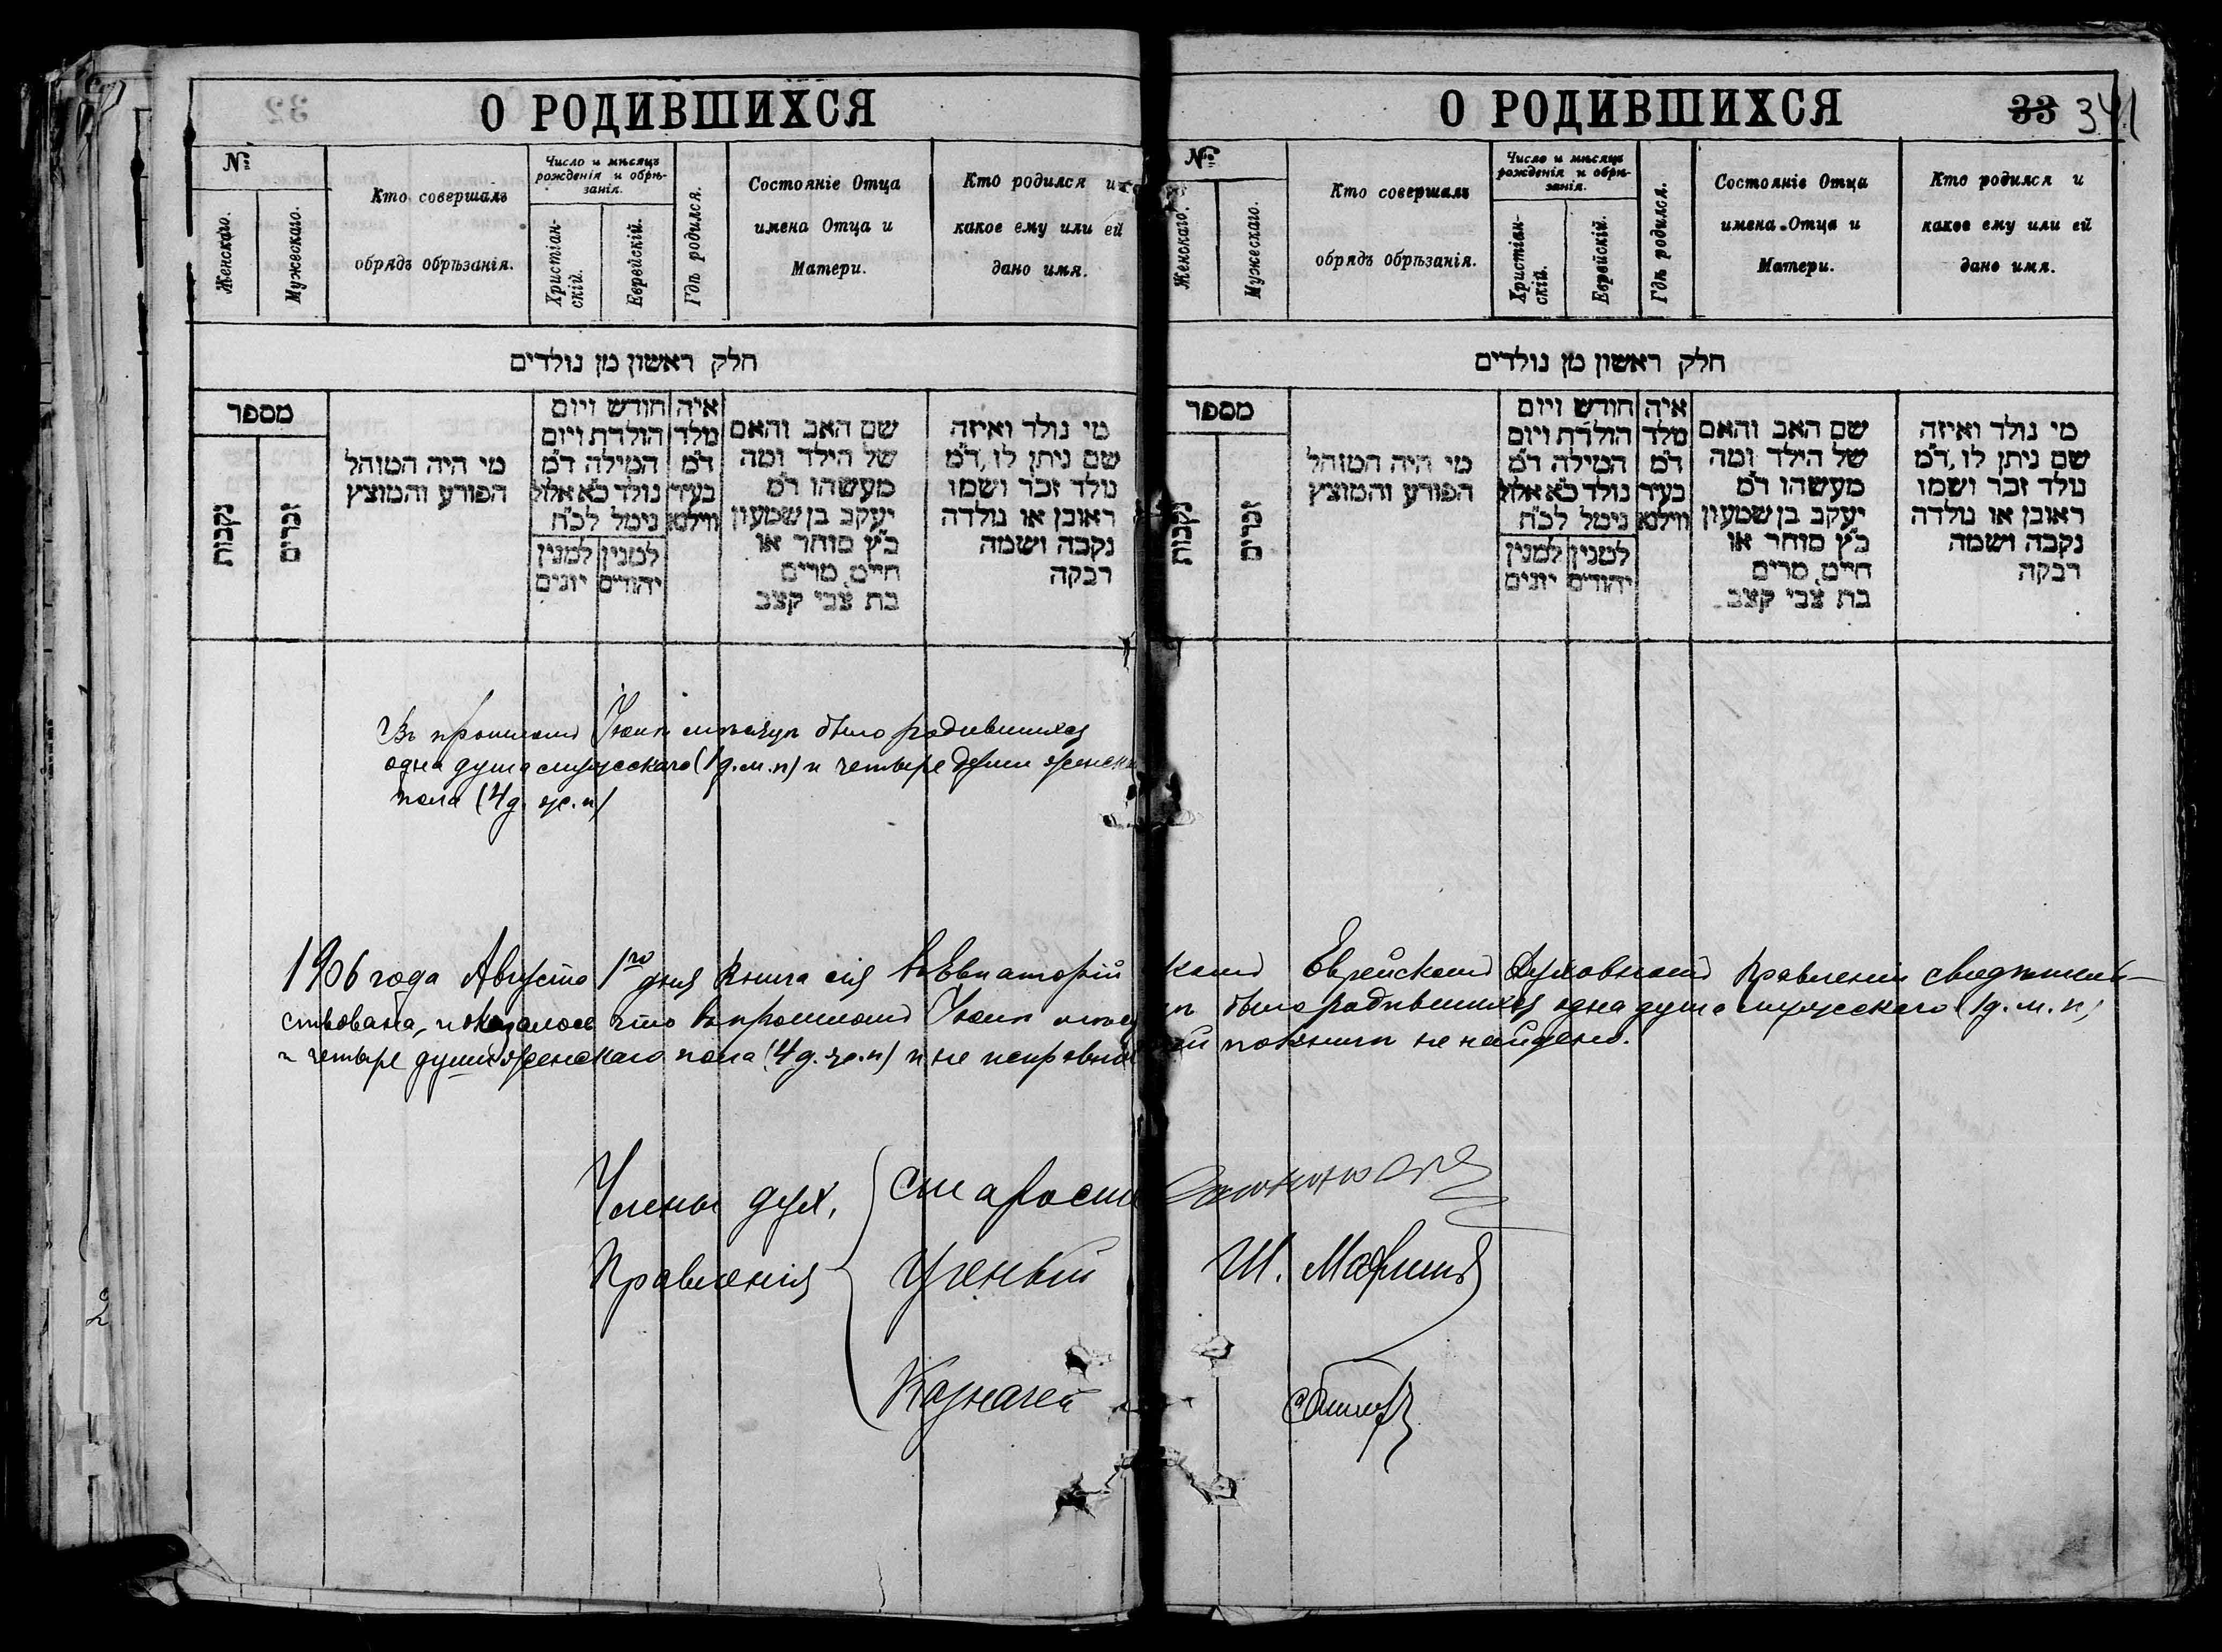 О РОДИВШИХСЯ
№
Женскаго.
Мужескаго.
Кто совершалъ
обрядъ обрѣзанія.
Число и мѣсяцъ
рожденія и обрѣ-
занія.
Христіан-
скій.
Еврейскій.
Гдѣ родился.
Состояніе Отца
имена Отца и
Матери.
Кто родился и
какое ему или ей
дано имя.
חלק ראשון מן נולדים
מספר
נקבות
זכרים
מי היה המוהל
הפורע והמוצץ
חודש ויום
הולדת ויום
המילה ד״מ
נולד כ״א אלול
נימל לכ״ח
למנין יהודים
למנין יונים
איה
מלד
ד״מ
בעיר
ווילנא
שם האב והאם
של הילד ומה
מעשהו ד״מ
יעקב בן שמעון
כ״ץ סוחר או
חיים, מרים
בת צבי קצב
מי נולד ואיזה
שם ניתן לו, ד״מ
נולד זכר ושמו
ראובן או נולדה
נקבה ושמה
רבקה
Въ прошломъ Іюлѣ мѣсяцѣ было родившихся
одна душа мужескаго (1 д. м. п) и четыре души женск
пола (4 д. ж. п)
О РОДИВШИХСЯ
33 341
№
Женскаго.
Мужескаго.
Кто совершалъ
обрядъ обрѣзанія.
Число и мѣсяцъ
рожденія и обрѣ-
занія.
Христіан-
скій.
Еврейскій.
Гдѣ родился.
Состояніе Отца
имена Отца и
Матери.
Кто родился и
какое ему или ей
дано имя.
חלק ראשון מן נולדים
מספר
נקבות
זכרים
מי היה המוהל
הפורע והמוצץ
חודש ויום
הולדת ויום
המילה ד״מ
נולד כ״א אלול
נימל לכ״ח
למנין יהודים
למנין יונים
איה
מלד
ד״מ
בעיר
ווילנא
שם האב והאם
של הילד ומה
מעשהו ד״מ
יעקב בן שמעון
כ״ץ סוחר או
חיים, מרים
בת צבי קצב
מי נולד ואיזה
שם ניתן לו, ד״מ
נולד זכר ושמו
ראובן או נולדה
נקבה ושמה
רבקה
1906 года Августа 1го дня книга сія въ Евпаторійскомъ Еврейскомъ Духовномъ Правленіи свидѣтель-
ствована, и оказалось что въ прошломъ Іюлѣ мѣсяцѣ было родившихся одна душа мужескаго (1 д. м. п)
и четыре души женскаго пола (4 д. ж. п) и не исправностей по книгѣ не найдено.
Члены дух.
Правленія
Староста
Ученый Ш.
Казначей
2